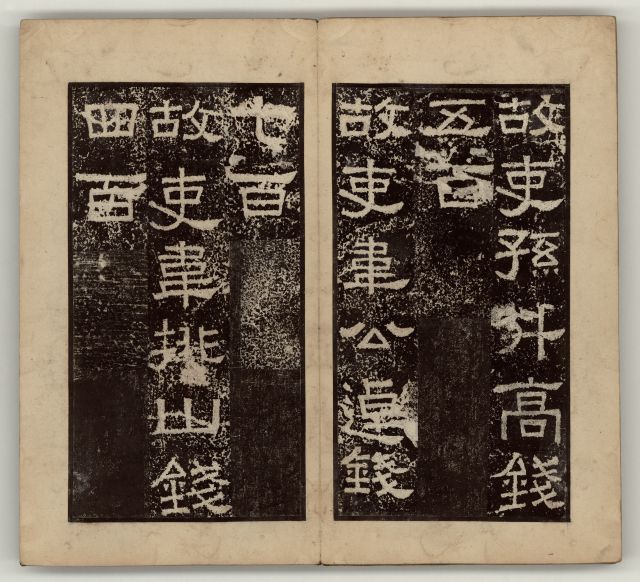 故吏孫升高錢
五百
故吏韋公逴錢
七百
故吏韋排山錢
四百